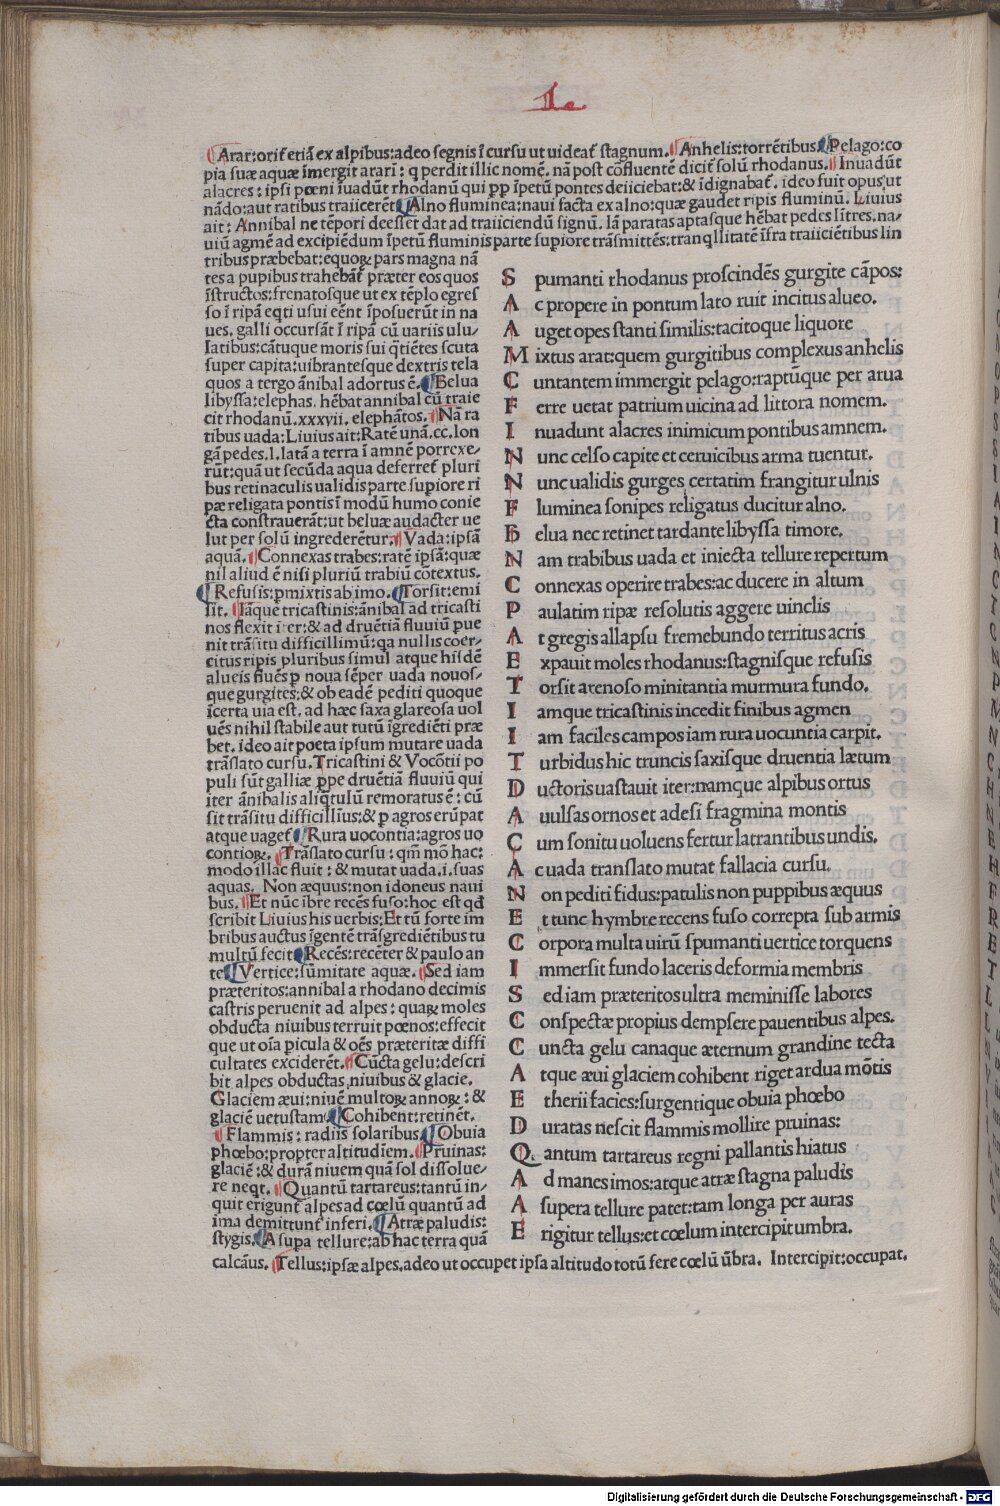 ¶Arar:orit̃ etiã ex alpibus:adeo segnis ĩ cursu ut uideat̃ stagnum.¶Anhelis:torrẽtibus.¶Pelago:co
pia suæ aquæ ĩmergit arari: q perdit illic nomẽ. nã post cõfluentẽ dicit̃ solũ rhodanus.¶Inuadũt
alacres: ipsi pœni ĩuadũt rhodanũ qui pp ĩpetũ pontes deiiciebat:& ĩdignabat̃. ideo fuit opus ut
nãdo:aut ratibus traiicerẽt¶Alno fluminea:naui facta ex alno:quæ gaudet ripis fluminũ. Liuius
ait: Annibal ne tẽpori deesset dat ad traiiciendũ signũ. Iã paratas aptasque hẽbat pedes lĩtres.na/
uiũ agmẽ ad excipiẽdum ĩpetũ fluminis parte supiore trãsmittẽs:tranqllitatẽ ĩfra traiiciẽtibus lin
tribus præbebat:equoꝝ pars magna nã
tes a pupibus trahebãt præter eos quos
ĩstructos:frenatosque ut ex tẽplo egres
so ĩ ripã eqti usui eẽnt ĩposuerũt in na
ues. galli occursãt ĩ ripã cũ uariis ulu/
latibus:cãtuque moris sui qtiẽtes scuta
super capita:uibrantesque dextris tela
quos a tergo ãnibal adortus ẽ.¶Belua
libyssa:elephas. hẽbat annibal cũ traie
cit rhodanũ.xxxvii. elephãtos.¶Nã ra
tibus uada:Liuius ait:Ratẽ unã.cc.lon
gã pedes.l.latã a terra ĩ amnẽ porrexe/
rũt:quã ut secũda aqua deferret̃ pluri
bus retinaculis ualidis parte supiore ri
pæ religata pontis ĩ modũ humo conie
cta constrauerãt:ut beluæ audacter ue
lut per solũ ingrederẽtur.¶Vada:ipsã
aquã.¶Connexas trabes:ratẽ ipsã:quæ
nil aliud ẽ nisi pluriũ trabiũ cõtextus.
¶Refusis:pmixtis ab imo.¶Torsit:emi
sit.¶Iãque tricastinis:ãnibal ad tricasti
nos flexit iter:& ad druẽtiã fluuiũ pue
nit trãsitu difficillimũ:qa nullis coer/
citus ripis pluribus simul atque hisdẽ
alueis fluẽs p noua sẽper uada nouos/
que gurgites:& ob eadẽ pediti quoque
ĩcerta uia est. ad hæc saxa glareosa uol
uẽs nihil stabile aut tutũ ĩgrediẽti præ
bet. ideo ait poeta ipsum mutare uada
trãslato cursu.Tricastini & Vocõtii po
puli sũt galliæ ppe druẽtiã fluuiũ qui
iter ãnibalis aliqtulũ remoratus ẽ: cũ
sit trãsitu difficillius:& p agros erũpat
atque uaget̃¶Rura uocontia:agros uo
contioꝝ.¶Trãslato cursu: qm̃ mõ hac:
modo illac fluit: & mutat uada.i.suas
aquas. Non æquus:non idoneus naui
bus.¶Et nũc ĩbre recẽs fuso:hoc est qd
scribit Liuius his uerbis:Et tũ forte im
bribus auctus ĩgentẽ trãsgrediẽtibus tu
multũ fecit¶Recẽs:recẽter & paulo an
te¶Vertice:sũmitate aquæ.¶Sed iam
præteritos:annibal a rhodano decimis
castris peruenit ad alpes: quaꝝ moles
obducta niuibus terruit pœnos:effecit
que ut oĩa picula & oẽs præteritæ diffi
cultates exciderẽt.¶Cũcta gelu:descri
bit alpes obductas niuibus & glacie.
Glaciem æui:niuẽ multoꝝ annoꝝ: &
glaciẽ uetustam¶Cohibent:retinẽt.
¶Flammis: radiis solaribus¶Obuia
phœbo:propter altitudĩem.¶Pruinas:
glaciẽ:& durã niuem quã sol dissolue/
re neqt.¶Quantũ tartareus:tantũ in/
quit erigunt̃ alpes ad cœlũ quantũ ad
ima demittunt̃ inferi.¶Atræ paludis:
stygis.¶A supa tellure:ab hac terra quã
calcãus.¶Tellus:ipsæ alpes.adeo ut occupet ipsa altitudo totũ fere cœlũ ũbra. Intercipit:occupat.
S pumanti rhodanus proscindẽs gurgite cãpos:
A c propere in pontum lato ruit incitus alueo.
A uget opes stanti similis:tacitoque liquore
M ixtus arat:quem gurgitibus complexus anhelis
C untantem immergit pelago:raptũque per arua
F erre uetat patrium uicina ad littora nomem.
I nuadunt alacres inimicum pontibus amnem.
N unc celso capite et ceruicibus arma tuentur.
N unc ualidis gurges certatim frangitur ulnis
F luminea sonipes religatus ducitur alno.
B elua nec retinet tardante libyssa timore.
N am trabibus uada et iniecta tellure repertum
C onnexas operire trabes:ac ducere in altum
P aulatim ripæ resolutis aggere uinclis
A t gregis allapsu fremebundo territus acris
E xpauit moles rhodanus:stagnisque refusis
T orsit arenoso minitantia murmura fundo.
I amque tricastinis incedit finibus agmen
I am faciles campos iam rura uocuntia carpit.
T urbidus hic truncis saxisque druentia lætum
D uctoris uastauit iter:namque alpibus ortus
A uulsas ornos et adesi fragmina montis
C um sonitu uoluens fertur latrantibus undis.
A c uada translato mutat fallacia cursu.
N on pediti fidus:patulis non puppibus æquus
E t tunc hymbre recens fuso correpta sub armis
C orpora multa uirũ spumanti uertice torquens
I mmersit fundo laceris deformia membris
S ed iam præteritos ultra meminisse labores
C onspectæ propius dempsere pauentibus alpes.
C uncta gelu canaque æternum grandine tecta
A tque æui glaciem cohibent riget ardua mõtis
E therii facies:surgentique obuia phœbo
D uratas nescit flammis mollire pruinas:
Q antum tartareus regni pallantis hiatus
A d manes imos:atque atræ stagna paludis
A supera tellure patet:tam longa per auras
E rigitur tellus:et cœlum intercipit umbra.
Digitalisierung gefördert durch die Deutsche Forschungsgemeinschaft - DFG